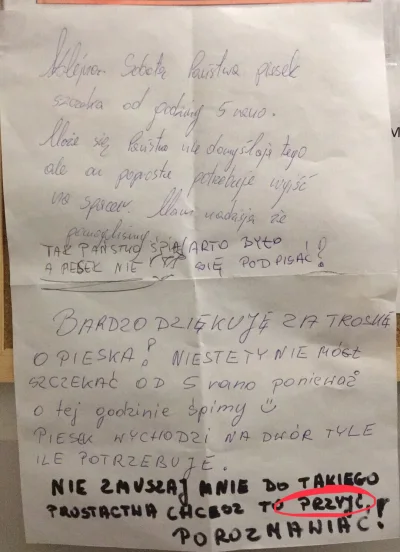 Kolejna Sobota Państwa piesek
szczeka od godziny 5 rano.
Może się Państwo nie domyślają tego
ale on poprostu potrzebuje wyjść
na spacer. Mam nadzieję że
pomogliśmy
TAK PAŃSTWO ŚPIĄ WARTO BYŁO
A PESEK NIE SIĘ PODPISAĆ?
BARDZO DZIĘKUJĘ ZA TROSKĘ
O PIESKA! NIESTETY NIE MÓGŁ
SZCZEKAĆ OD 5 rano ponieważ
o tej godzinie śpimy ☺
PIESEK WYCHODZI NA DWÓR TYLE
ILE POTRZEBUJE.
NIE ZMUSZAJ MNIE DO TAKIEGO
PROSTACTWA CHCESZ TO PRZYJĆ,
POROZMAWIAĆ!